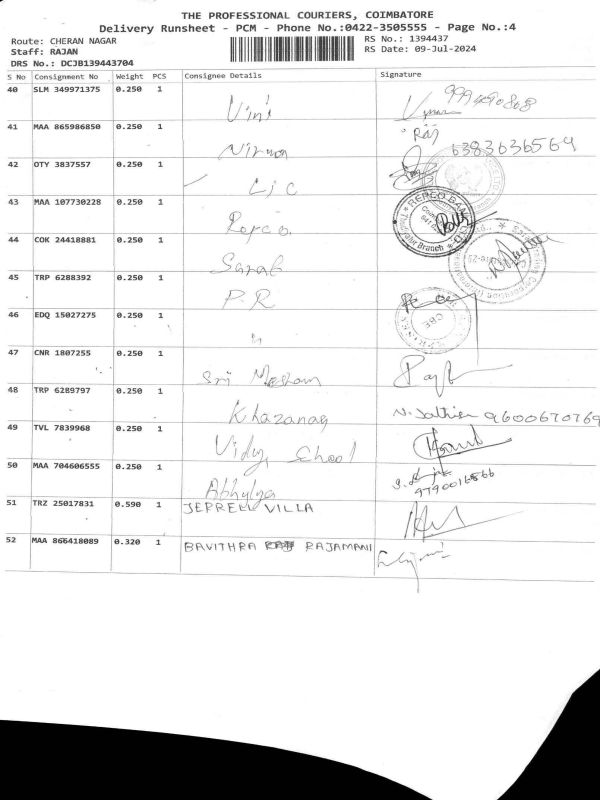 THE PROFESSIONAL COURIERS, COIMBATORE
Delivery Runsheet - PCM - Phone No.:0422-3505555 - Page No.:4
Route: CHERAN NAGAR
RS No.: 1394437
Staff: RAJAN
RS Date: 09-Jul-2024
DRS No.: DCJB139443704
S No Consignment No Weight PCS Consignee Details Signature
40 SLM 349971375 0.250 1 Vini
41 MAA 865986850 0.250 1 Nirman 6383636569
42 OTY 3837557 0.250 1 LIC
43 MAA 107730228 0.250 1 Repco REPCO BANK
44 COK 24418881 0.250 1 Sarab
45 TRP 6288392 0.250 1 P.R
46 EDQ 15027275 0.250 1 CBE
47 CNR 1807255 0.250 1 Sri
48 TRP 6289797 0.250 1 Khazanag 9600670769
49 TVL 7839968 0.250 1
50 MAA 704606555 0.250 1 9790016866
51 TRZ 25017831 0.590 1 JEPRELL VILLA
52 MAA 866418089 0.320 1 BAVITHRA RAJAMANI